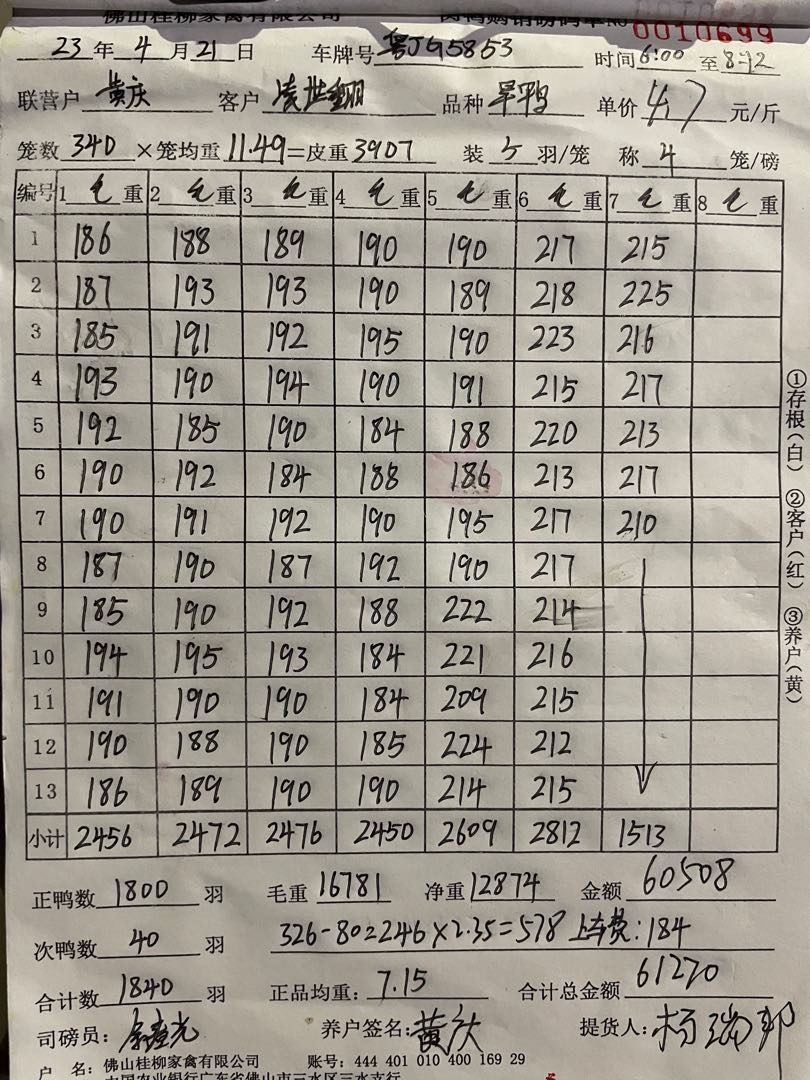 佛山桂柳家禽有限公司 肉鸭购销磅码单 NO 0010699
23 年 4 月 21 日 车牌号 粤JG5853 时间 6:00 至 8:12
联营户 黄庆 客户 品种 单价 4.7 元/斤
笼数 340 ×笼均重 11.49 =皮重 3907 装 5 羽/笼 称 4 笼/磅
编号 1 毛 重 2 毛 重 3 毛 重 4 毛 重 5 毛 重 6 毛 重 7 毛 重 8 毛 重
1 186 188 189 190 190 217 215
2 187 193 193 190 189 218 225
3 185 191 192 195 190 223 216
4 193 190 194 190 191 215 217
5 192 185 190 184 188 220 213
6 190 192 184 188 186 213 217
7 190 191 192 190 195 217 210
8 187 190 187 192 190 217
9 185 190 192 188 222 214
10 194 195 193 184 221 216
11 191 190 190 184 209 215
12 190 188 190 185 224 212
13 186 189 190 190 214 215
小计 2456 2472 2476 2450 2609 2812 1513
①存根(白) ②客户(红) ③养户(黄)
正鸭数 1800 羽 毛重 16781 净重 12874 金额 60508
次鸭数 40 羽 326-80=246×2.35=578 上车费:184
合计数 1840 羽 正品均重: 7.15 合计总金额 61270
司磅员: 养户签名: 黄庆 提货人: 杨瑞邦
户 名: 佛山桂柳家禽有限公司 账号: 444 401 010 400 169 29
中国农业银行广东省佛山市三水区三水支行